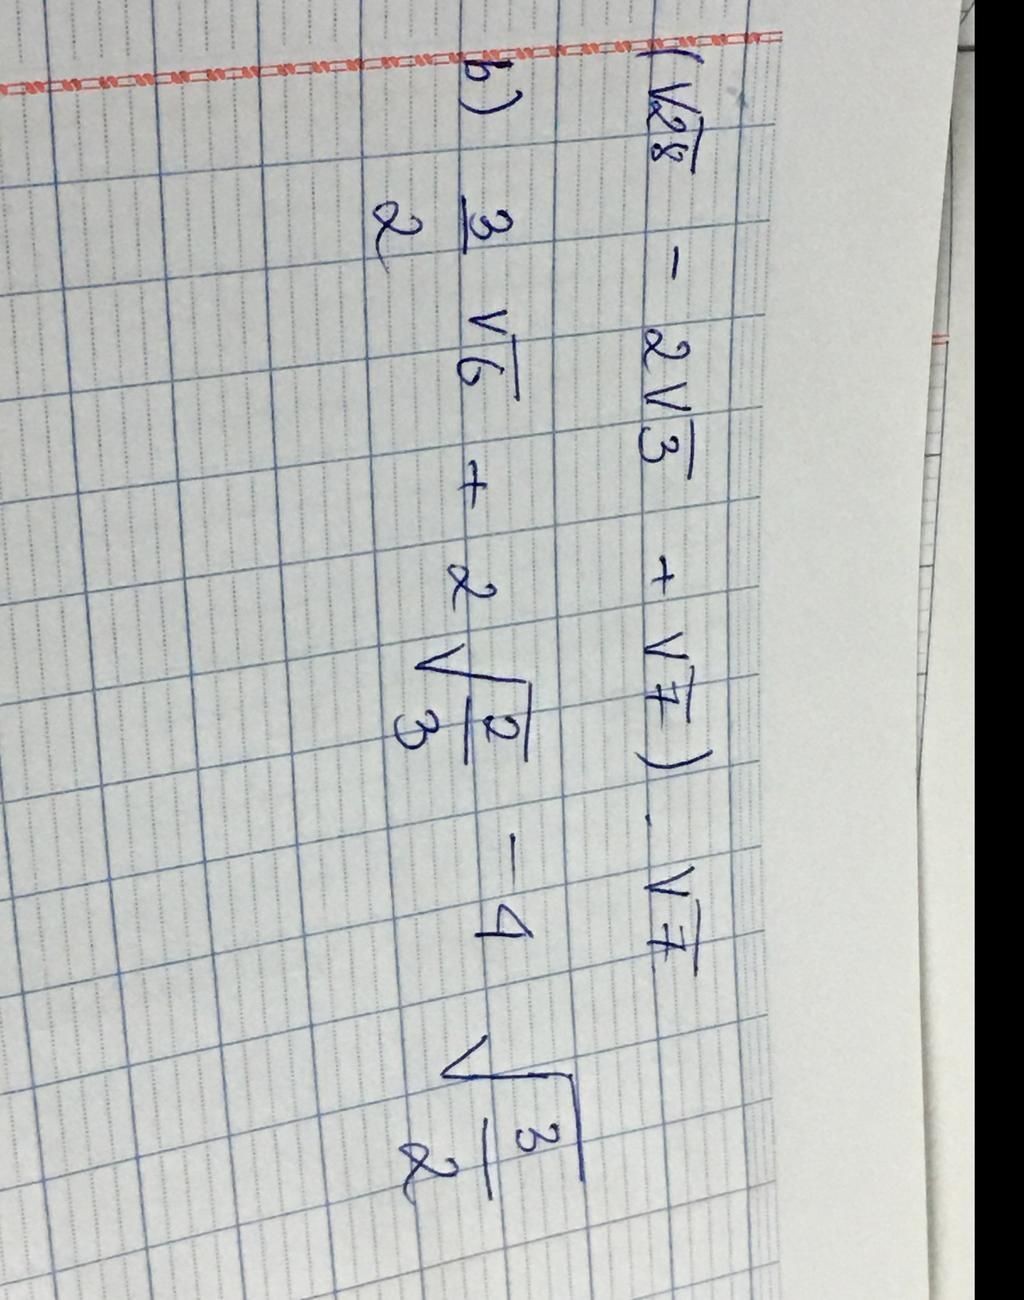 (√28 - 2√3 + √7) . √7
b) 3/2 √6 + 2√(2/3) - 4 √(3/2)